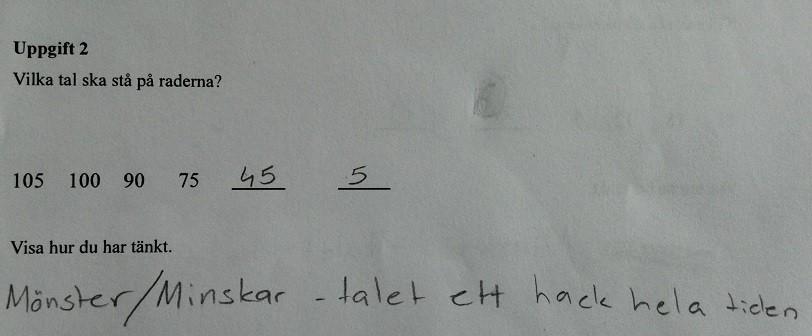 Uppgift 2
Vilka tal ska stå på raderna?
105 100 90 75 45 5
Visa hur du har tänkt.
Mönster/Minskar - talet ett hack hela tiden